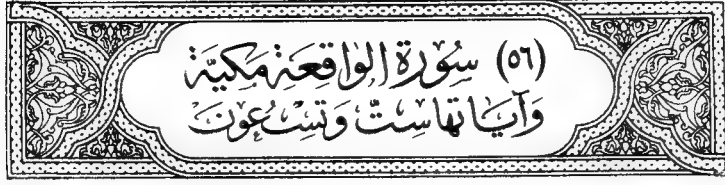 (٥٦) سُوْرَةُ الوَاقِعَةِ مَكيَّة
وَآيَاتهَا سِتٌّ وَتِسْعُونَ